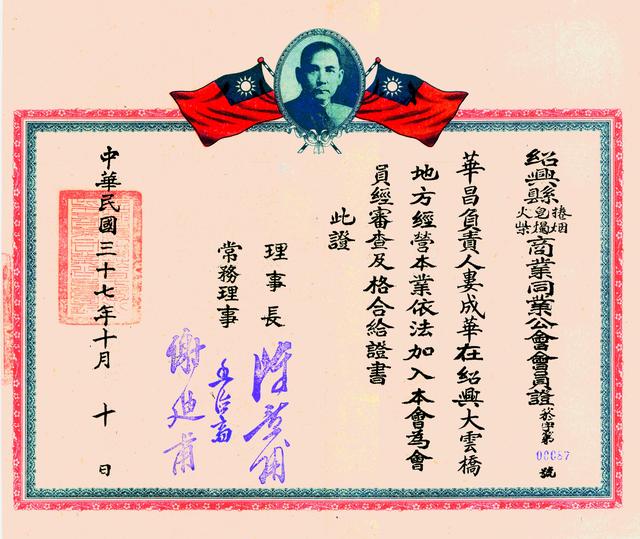 紹興縣捲烟皂燭火柴商業同業公會會員證
字第00087號
華昌負責人婁成華在紹興大雲橋
地方經營本業依法加入本會為會
員經審查及格合給證書
此證
理事長
常務理事
中華民國三十七年十月十日